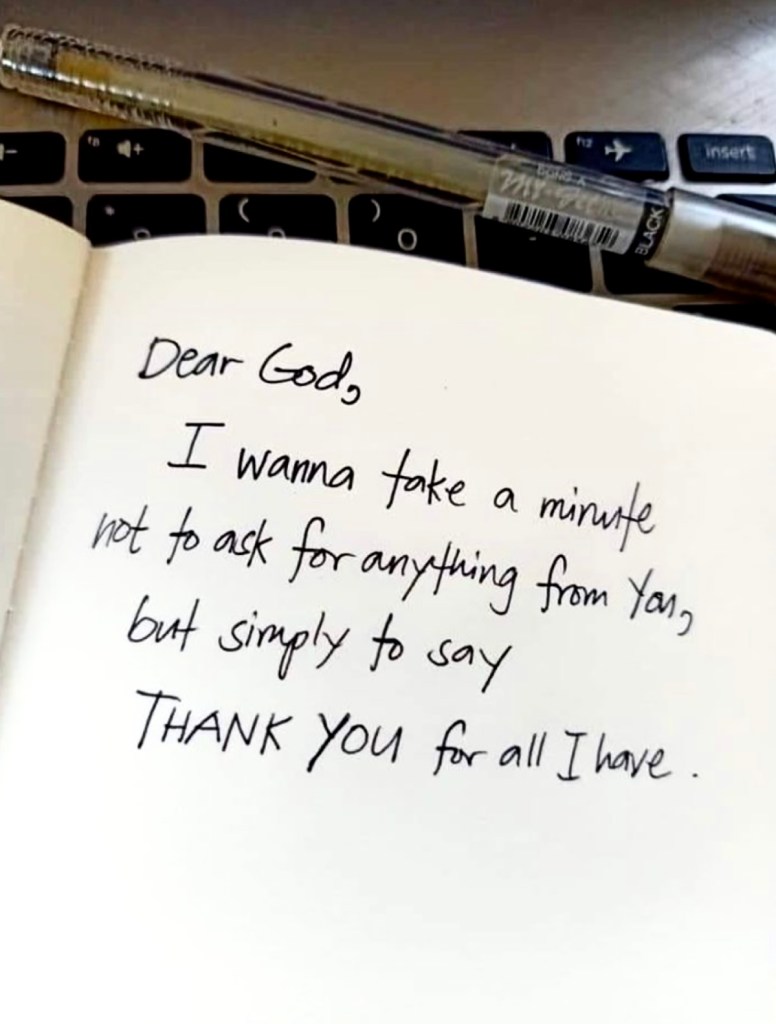 insert
DONG-A
My-Gel
BLACK
Dear God,
I wanna take a minute
not to ask for anything from You,
but simply to say
THANK YOU for all I have.